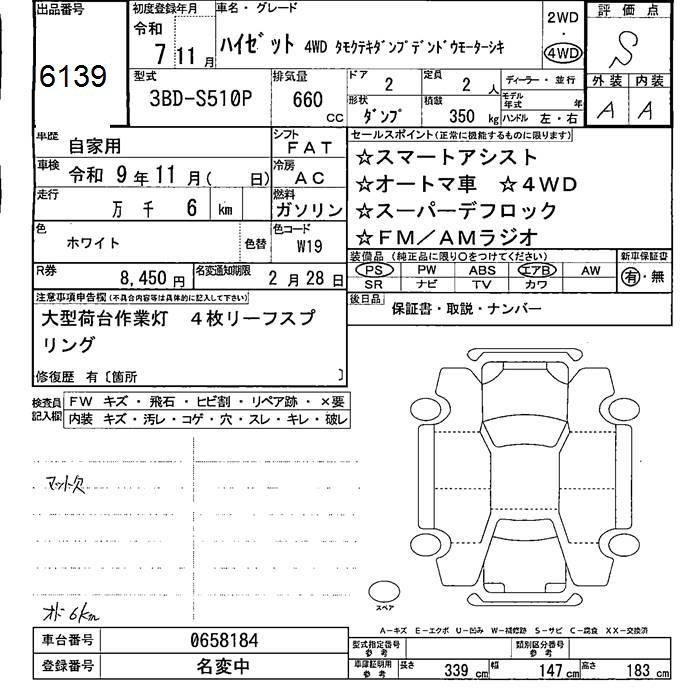 出品番号
6139
初度登録年月
令和
7 11 月
車名・グレード
ハイゼット 4WD タモクテキダンプデンドウモーターシキ
2WD
・
4WD
評価点
S
外装 内装
A A
型式
3BD-S510P
排気量
660 CC
ドア
2
定員
2 人
形状
ダンプ
積載
350 kg
ディーラー・並行
モデル年式 年
ハンドル 左・右
車歴 自家用
シフト
FAT
車検 令和 9年 11月( 日)
冷房
AC
走行
万 千 6 km
燃料
ガソリン
色
ホワイト
色替
色コード
W19
R券
8,450 円
名変通知期限
2月28日
セールスポイント(正常に機能するものに限ります)
☆スマートアシスト
☆オートマ車 ☆4WD
☆スーパーデフロック
☆FM/AMラジオ
装備品(純正品に限り○をつけてください)
PS PW ABS エアB AW
SR ナビ TV カワ
新車保証書
有・無
後日品
保証書・取説・ナンバー
注意事項申告欄(不具合内容等は具体的に記入して下さい)
大型荷台作業灯 4枚リーフスプ
リング
修復歴 有〔箇所 〕
検査員記入欄
FW キズ・飛石・ヒビ割・リペア跡・×要
内装 キズ・汚レ・コゲ・穴・スレ・キレ・破レ
マット欠
オド 6km
スペア
A-キズ E-エクボ U-凹み W-補修跡 S-サビ C-腐食 XX-交換済
車台番号 0658184
登録番号 名変中
型式指定番号 参考
類別区分番号 参考
車庫証明用 参考
長さ 339 cm 幅 147 cm 高さ 183 cm